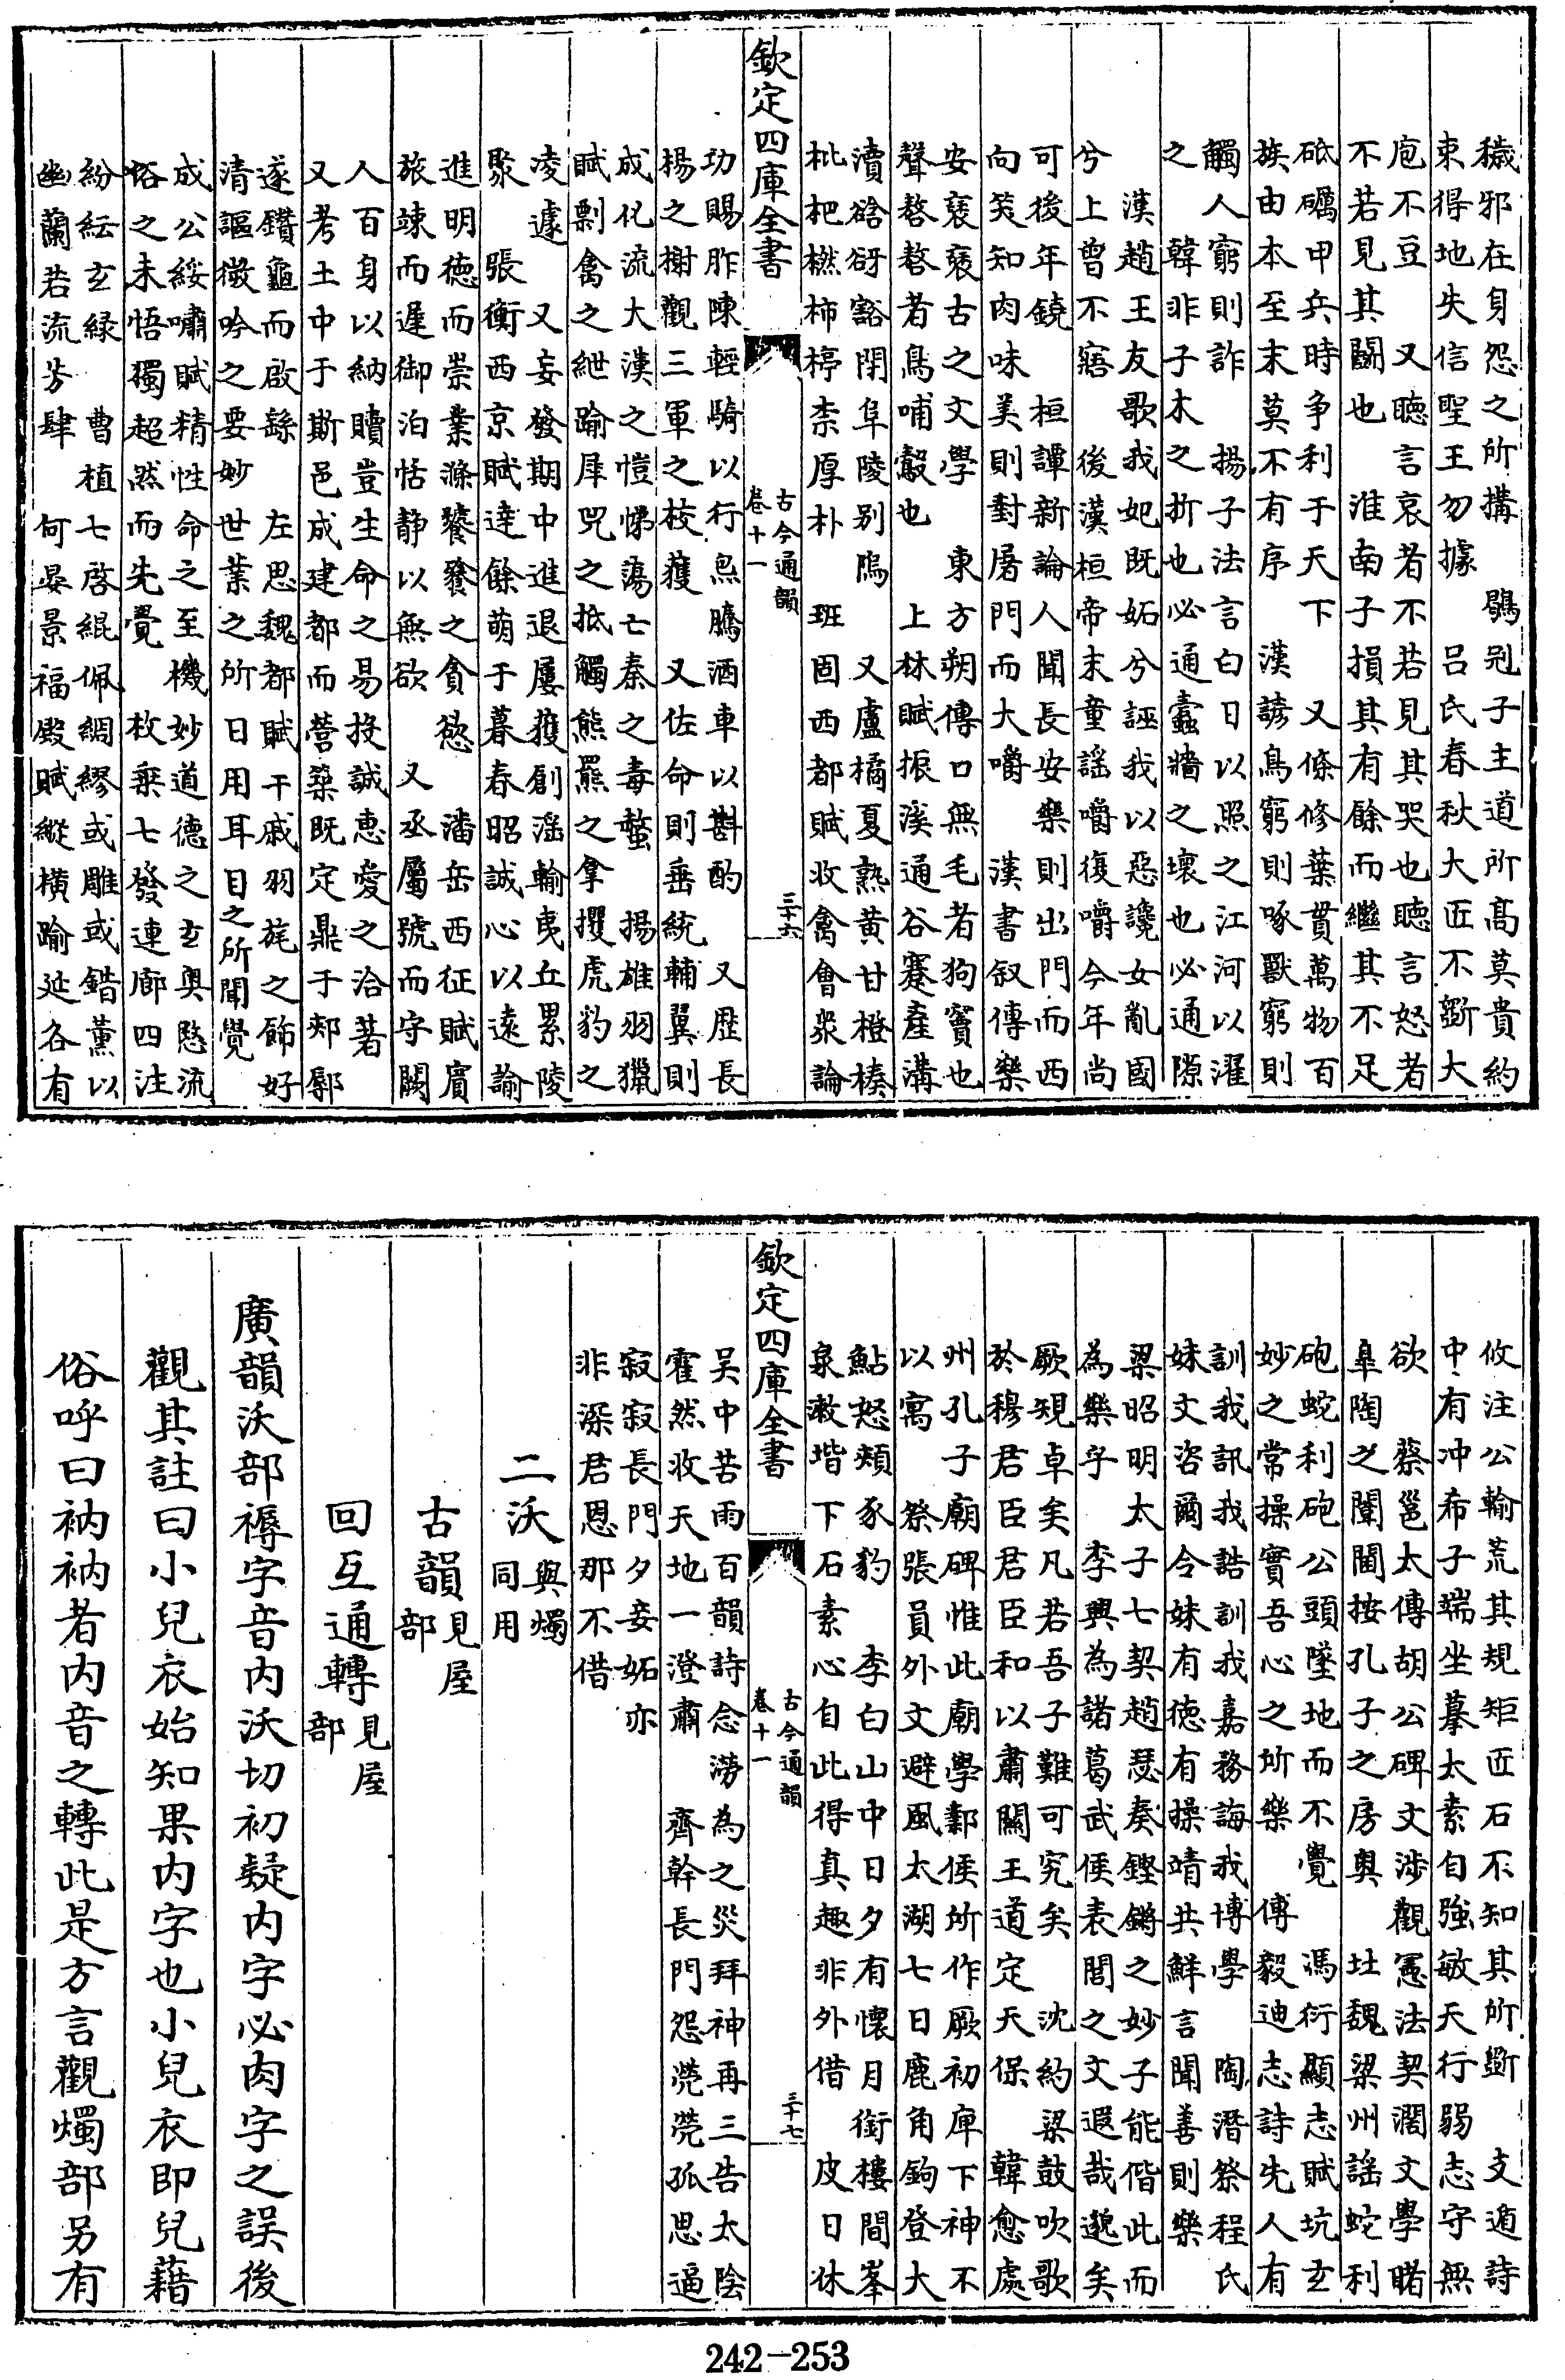 穢邪在身怨之所搆　鶡冠子主道所高莫貴約
束得地失信聖王勿據　呂氏春秋大匠不斲大
庖不豆　又聽言哀者不若見其哭也聽言怒者
不若見其鬬也　淮南子損其有餘而繼其不足
砥礪甲兵時争利于天下　又條修葉貫萬物百
族由本至末莫不有序　漢諺鳥窮則啄獸窮則
觸人窮則詐　揚子法言白日以照之江河以濯
之　韓非子木之折也必通蠹牆之壞也必通隙
漢趙王友歌我妃既妬兮誣我以惡讒女亂國
兮上曾不寤　後漢桓帝末童謡嚼復嚼今年尚
可後年鐃　桓譚新論人聞長安樂則出門而西
向笑知肉味美則對屠門而大嚼　漢書叙傳樂
安裒裒古之文學　東方朔傳口無毛者狗竇也
聲謷謷者鳥哺鷇也　上林賦振溪通谷蹇產溝
瀆谽谺豁閉阜陵别隝　又盧橘夏熟黄甘橙楱
枇杷橪柿楟柰厚朴　班固西都賦收禽會衆論
欽定四庫全書
古今通韻
卷十一
三十六
功賜胙陳輕騎以行炰騰酒車以斟酌　又歷長
楊之榭觀三軍之校獲　又佐命則垂統輔翼則
成化流大漢之愷悌蕩亡秦之毒螫　揚雄羽獵
賦剽禽之紲踰犀兕之抵觸熊羆之拏攫虎豹之
凌遽　又妄發期中進退屢獲創淫輪夷丘累陵
聚　張衡西京賦逹餘萌于暮春昭誠心以遠諭
進明德而崇業滌饕餮之貪慾　潘岳西征賦賓
旅竦而遲御泊恬静以無欲　又丞屬號而守闕
人百身以納贖豈生命之易投誠惠愛之洽著
又考土中于斯邑成建都而營築既定鼎于郟鄏
遂鑽龜而啟繇　左思魏都賦干戚羽旄之飾好
清謳㣲吟之要妙世業之所日用耳目之所聞覺
成公綏嘯賦精性命之至機妙道德之玄奥愍流
俗之未悟獨超然而先覺　枚乗七發連廊四注
紛紜玄緑　曹植七啓緄佩綢繆或雕或錯薰以
幽蘭若流芳肆　何晏景福殿賦縱横踰延各有
攸注公輸荒其規矩匠石不知其所斲　支遁詩
中有冲希子端坐摹太素自強敏天行弱志守無
欲　蔡邕太傅胡公碑文涉觀憲法契濶文學睹
臯陶之闡閫按孔子之房奥　北魏梁州謡蛇利
砲蛇利砲公頭墜地而不覺　馮衍顯志賦坑玄
妙之常操實吾心之所樂　傅毅迪志詩先人有
訓我訊我誥訓我嘉務誨我博學　陶潛祭程氏
妹文咨爾令妹有徳有操靖共鮮言聞善則樂
梁昭明太子七契趙瑟奏鏗鏘之妙子能偕此而
為樂乎　李興為諸葛武侯表閭之文遐哉邈矣
厥規卓矣凡若吾子難可究矣　沈約梁鼓吹歌
於穆君臣君臣和以肅關王道定天保　韓愈處
州孔子廟碑惟此廟學鄴侯所作厥初庳下神不
以寓　祭張員外文避風太湖七日鹿角鉤登大
鮎怒頰豕豞　李白山中日夕有懐月銜樓間峯
泉漱堦下石素心自此得真趣非外借　皮日休
欽定四庫全書
古今通韻
卷十一
三十七
吴中苦雨百韻詩念澇為之災拜神再三告太陰
霍然收天地一澄肅　齊幹長門怨煢煢孤思逼
寂寂長門夕妾妬亦
非深君恩那不借
二沃與燭同用
古韻見屋部
回互通轉見屋部
廣韻沃部褥字音内沃切初疑内字必肉字之誤後
觀其註曰小兒衣始知果内字也小兒衣即兒藉
俗呼曰衲衲者内音之轉此是方言觀燭部另有
242-253